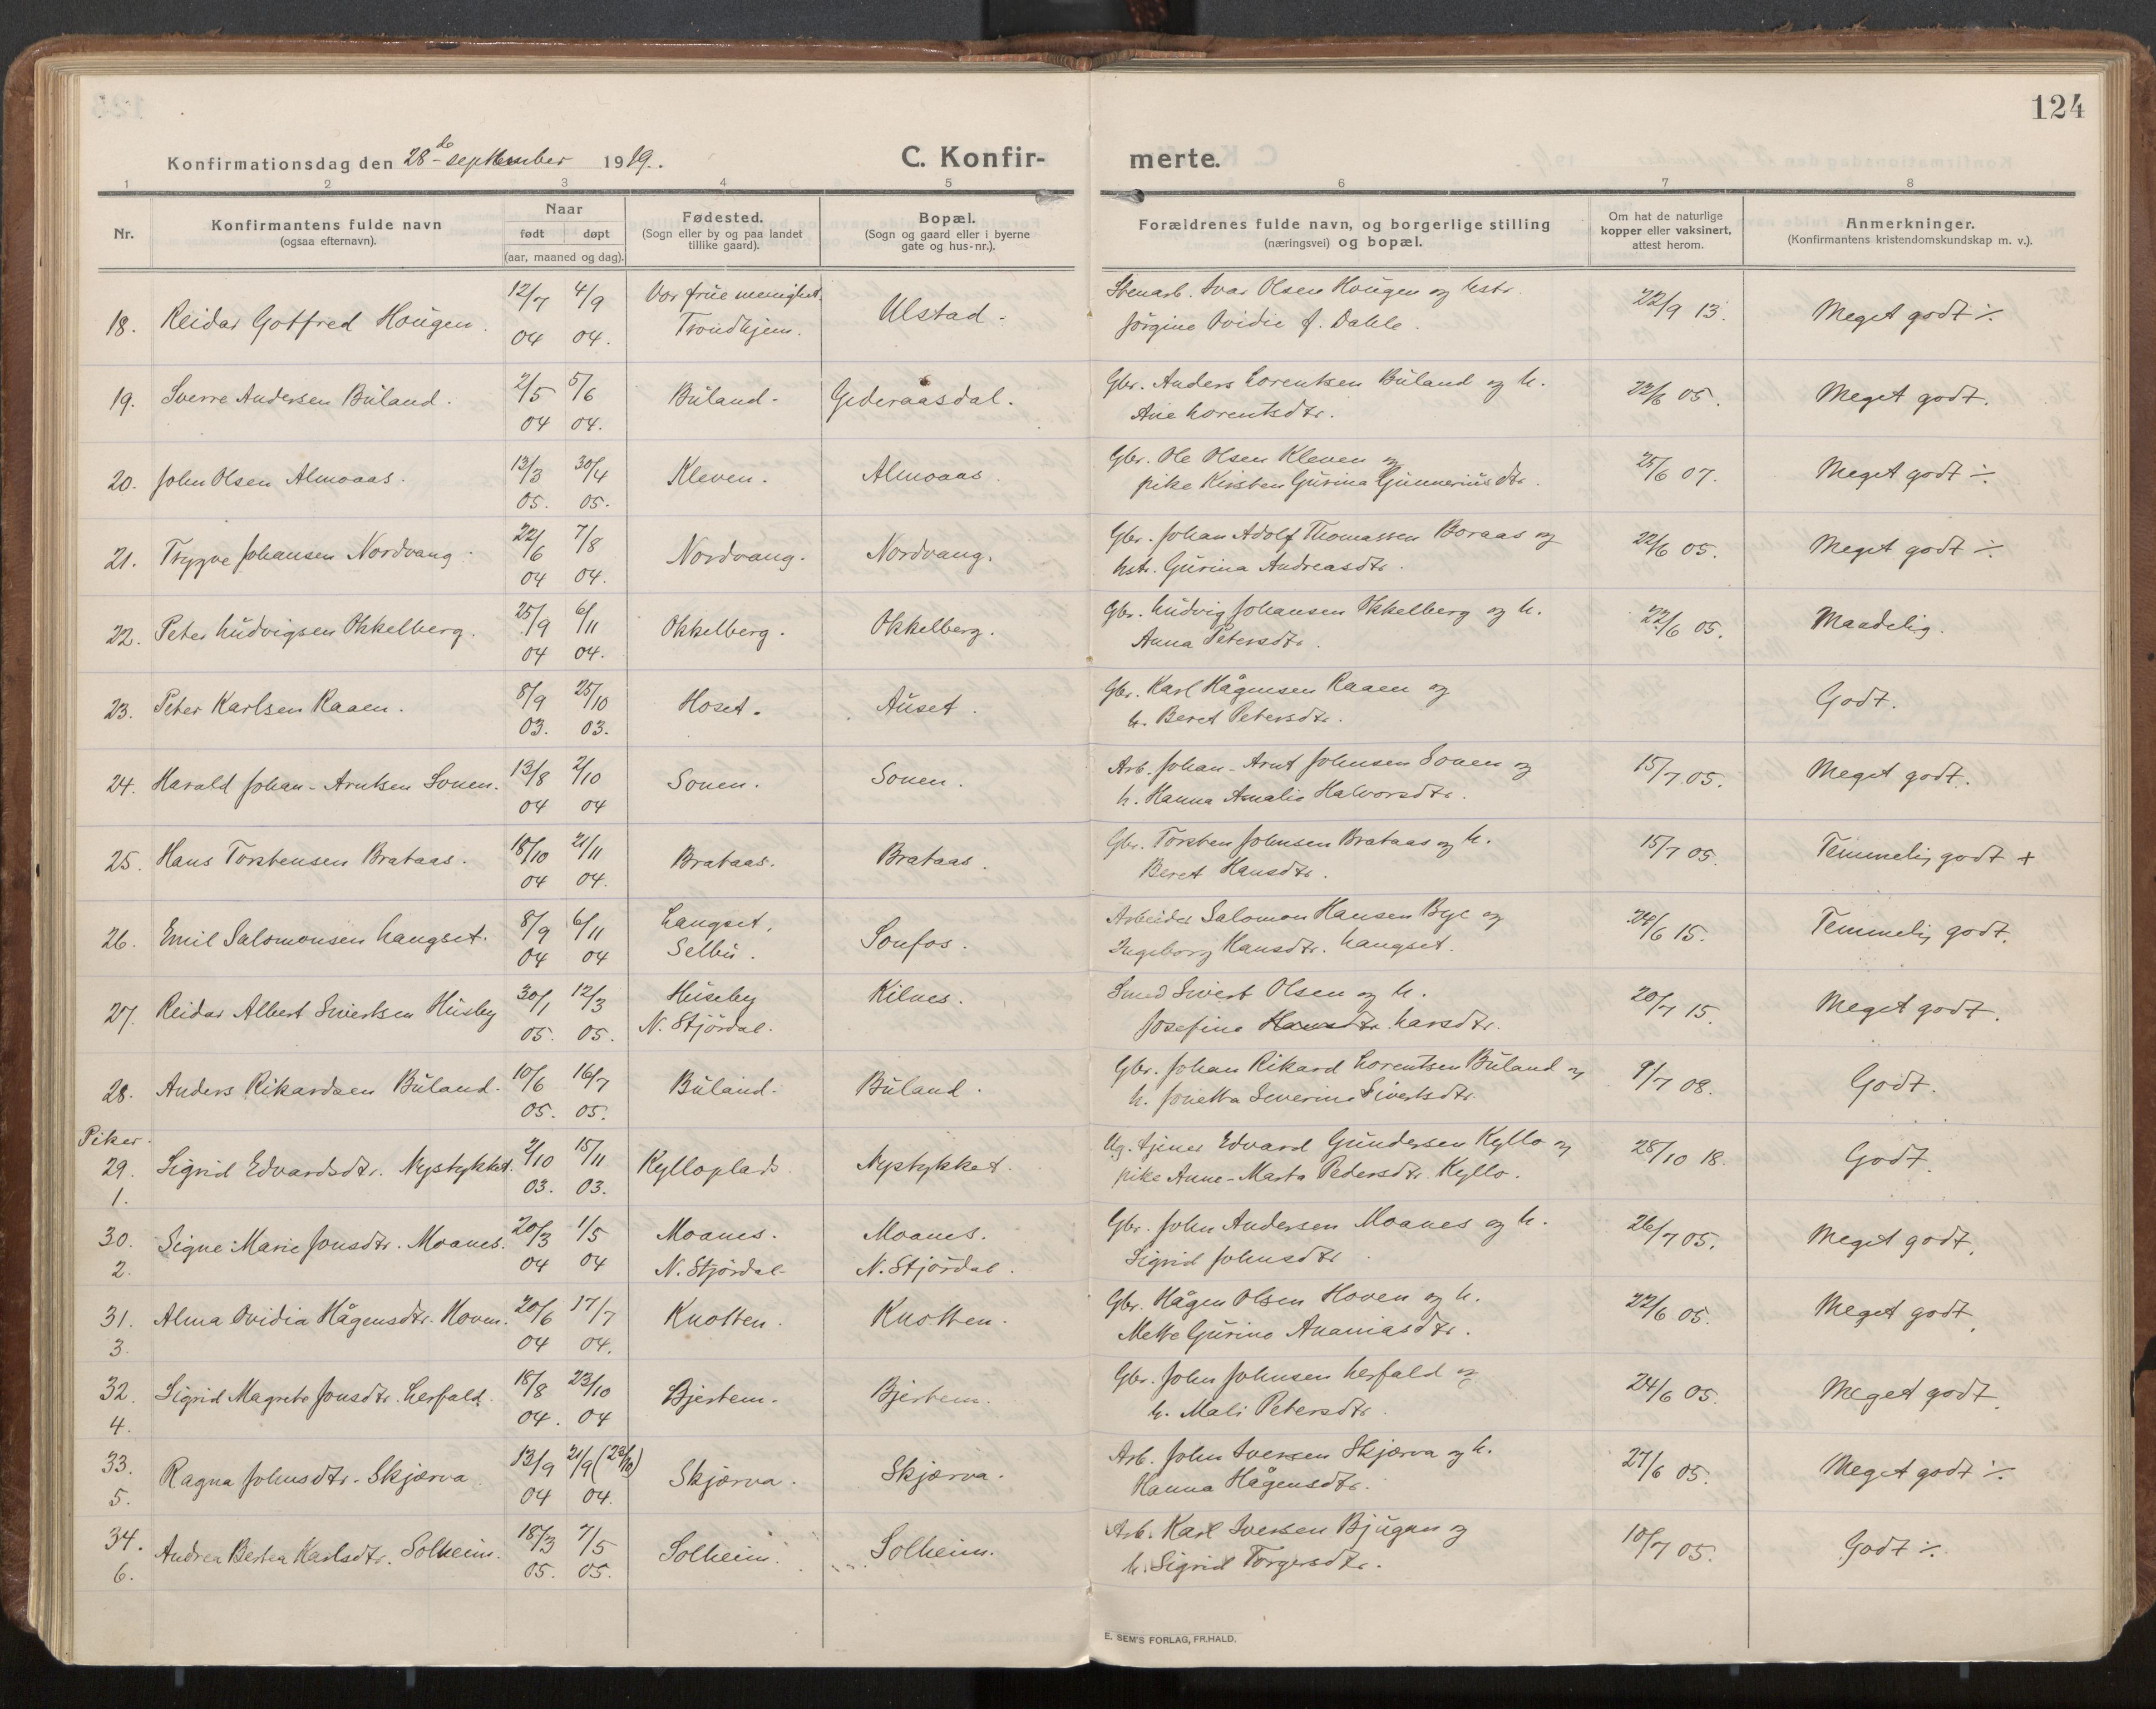 124
Konfirmationsdag den 28de september 1919. C. Konfirmerte.
1 2 3 4 5 6 7 8
Nr. Konfirmantens fulde navn (ogsaa efternavn). Naar født døpt (aar, maaned og dag). Fødested. (Sogn eller by og paa landet tillike gaard). Bopæl. (Sogn og gaard eller i byerne gate og hus-nr.). Forældrenes fulde navn, og borgerlige stilling (næringsvei) og bopæl. Om hat de naturlige kopper eller vaksinert, attest herom. Anmerkninger. (Konfirmantens kristendomskundskap m. v.).
18. Reidar Gotfred Hougen. 12/7 04 4/9 04. Vor frue menighet. Trondhjem. Ulstad. Stenarb. Ivar Olsen Hougen og hstr. Jörgine Ovidie f. Dahle. 22/9 13. Meget godt ÷
19. Sverre Andersen Buland. 2/5 04 5/6 04. Buland. Gederaasdal. Gbr. Anders Lorentsen Buland og h. Ane Lorentsdtr. 22/6 05. Meget godt.
20. John Olsen Almoaas. 13/3 05. 30/4 05. Kleven. Almoaas. Gbr. Ole Olsen Kleven og pike Kirsten Gurina Gunneriusdtr. 25/6 07. Meget godt ÷
21. Trygve Johansen Nordvang. 22/6 04 7/8 04. Nordvang. Nordvang. Gbr. Johan Adolf Thomassen Boraas og hstr. Gurina Andreasdtr. 22/6 05. Meget godt ÷
22. Peter Ludvigsen Okkelberg. 25/9 04 6/11 04. Okkelberg. Okkelberg. Gbr. Ludvig Johansen Okkelberg og h. Anna Petersdtr. 22/6 05. Maadelig.
23. Peter Karlsen Raaen. 8/9 03. 25/10 03. Hoset. Auset. Gbr. Karl Hågensen Raaen og h. Beret Petersdtr. Godt.
24. Harald Johan-Arntsen Sonen. 13/8 04 2/10 04 Sonen. Sonen. Arb. Johan-Arnt Johnsen Sonen og h. Hanna Amalie Halvorsdtr. 15/7 05. Meget godt.
25. Hans Torstensen Brataas. 18/10 04 21/11 04. Brataas. Brataas. Gbr. Torsten Johnsen Brataas og h. Beret Hansdtr. 15/7 05. Temmelig godt +
26. Emil Salomonsen Langset. 8/9 04 6/11 04 Langset, Selbu. Sonfos. Arbeider Salomon Hansen Bye og Ingeborg Hansdtr. Langset. 24/6 15. Temmelig godt.
27. Reidar Albert Sivertsen Husby 30/1 05. 12/3 05. Huseby N. Stjördal. Kilnes. Smed Sivert Olsen og h. Josefine Hansdtr. Larsdtr. 20/7 15. Meget godt.
28. Anders Rikardsen Buland. 10/6 05. 16/7 05. Buland. Buland. Gbr. Johan Rikard Lorentsen Buland og h. Jonetta Severine Sivertsdtr. 9/7 08. Godt.
Piker.
29. 1. Sigrid Edvardsdtr. Nystykket. 2/10 03. 15/11 03. Kylloplads. Nystykket. Ug. tjener Edvard Gundersen Kyllo og pike Anne-Marta Pedersdtr. Kyllo. 28/10 18. Godt.
30. 2. Signe Marie Jonsdtr. Moanes. 20/3 04 1/5 04 Moanes. N. Stjördal Moanes. N. Stjördal. Gbr. John Andersen Moanes og h. Sigrid Johnsdtr 26/7 05. Meget godt.
31. 3. Alma Ovidia Hågensdtr. Hoven. 20/6 04 17/7 04. Knotten. Knotten. Gbr. Hågen Olsen Hoven og h. Mette Gurine Ananiasdtr. 22/6 05. Meget godt.
32. 4. Sigrid Magrete Jonsdtr. Lerfald. 18/8 04. 23/10 04 Bjertem. Bjertem. Gbr. John Johnsen Lerfald og h. Mali Petersdtr. 24/6 05. Meget godt.
33. 5. Ragna Johnsdtr. Skjærva 13/9 04 21/9 (23/10) 04. Skjærva. Skjærva. Arb. John Iversen Skjærva og h. Hanna Hågensdtr. 27/6 05. Meget godt ÷
34. 6. Andrea Bertea Karlsdtr. Solheim. 18/3 05. 7/5 05. Solheim. Solheim. Arb. Karl Iversen Bjugan og h. Sigrid Torgersdtr. 10/7 05. Godt ÷
E. SEM'S FORLAG, FR.HALD.